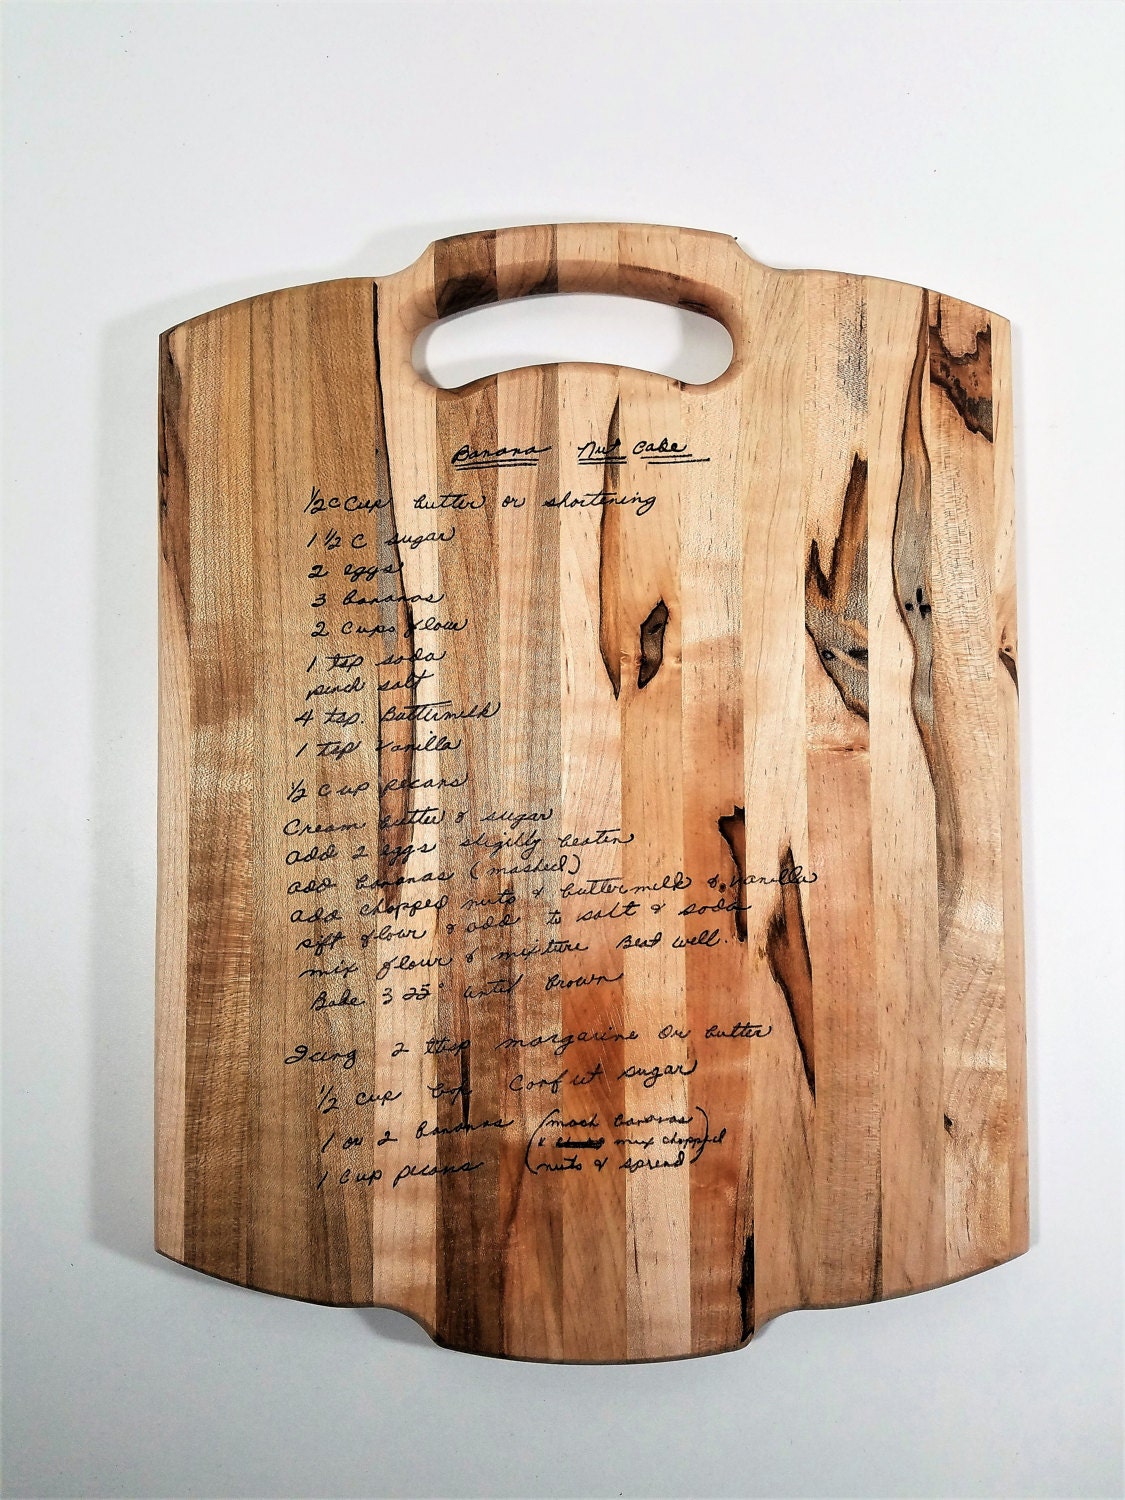 Banana Nut Cake
1/2 c Cup butter or shortening
1 1/2 C sugar
2 eggs
3 bananas
2 Cups flour
1 tsp soda
pinch salt
4 tsp. Buttermilk
1 tsp Vanilla
1/2 Cup pecans
Cream butter & sugar
add 2 eggs sligilly beaten
add bananas (mashed)
add chopped nuts & buttermilk & vanilla
sift flour & add to salt & soda
mix flour & mixture Beat well.
Bake 325° until brown
Icing 2 tbsp margarine or butter
1/2 cup sugar
1 or 2 bananas (mash bananas
& mix chopped
1 Cup pecans (nuts & spread)